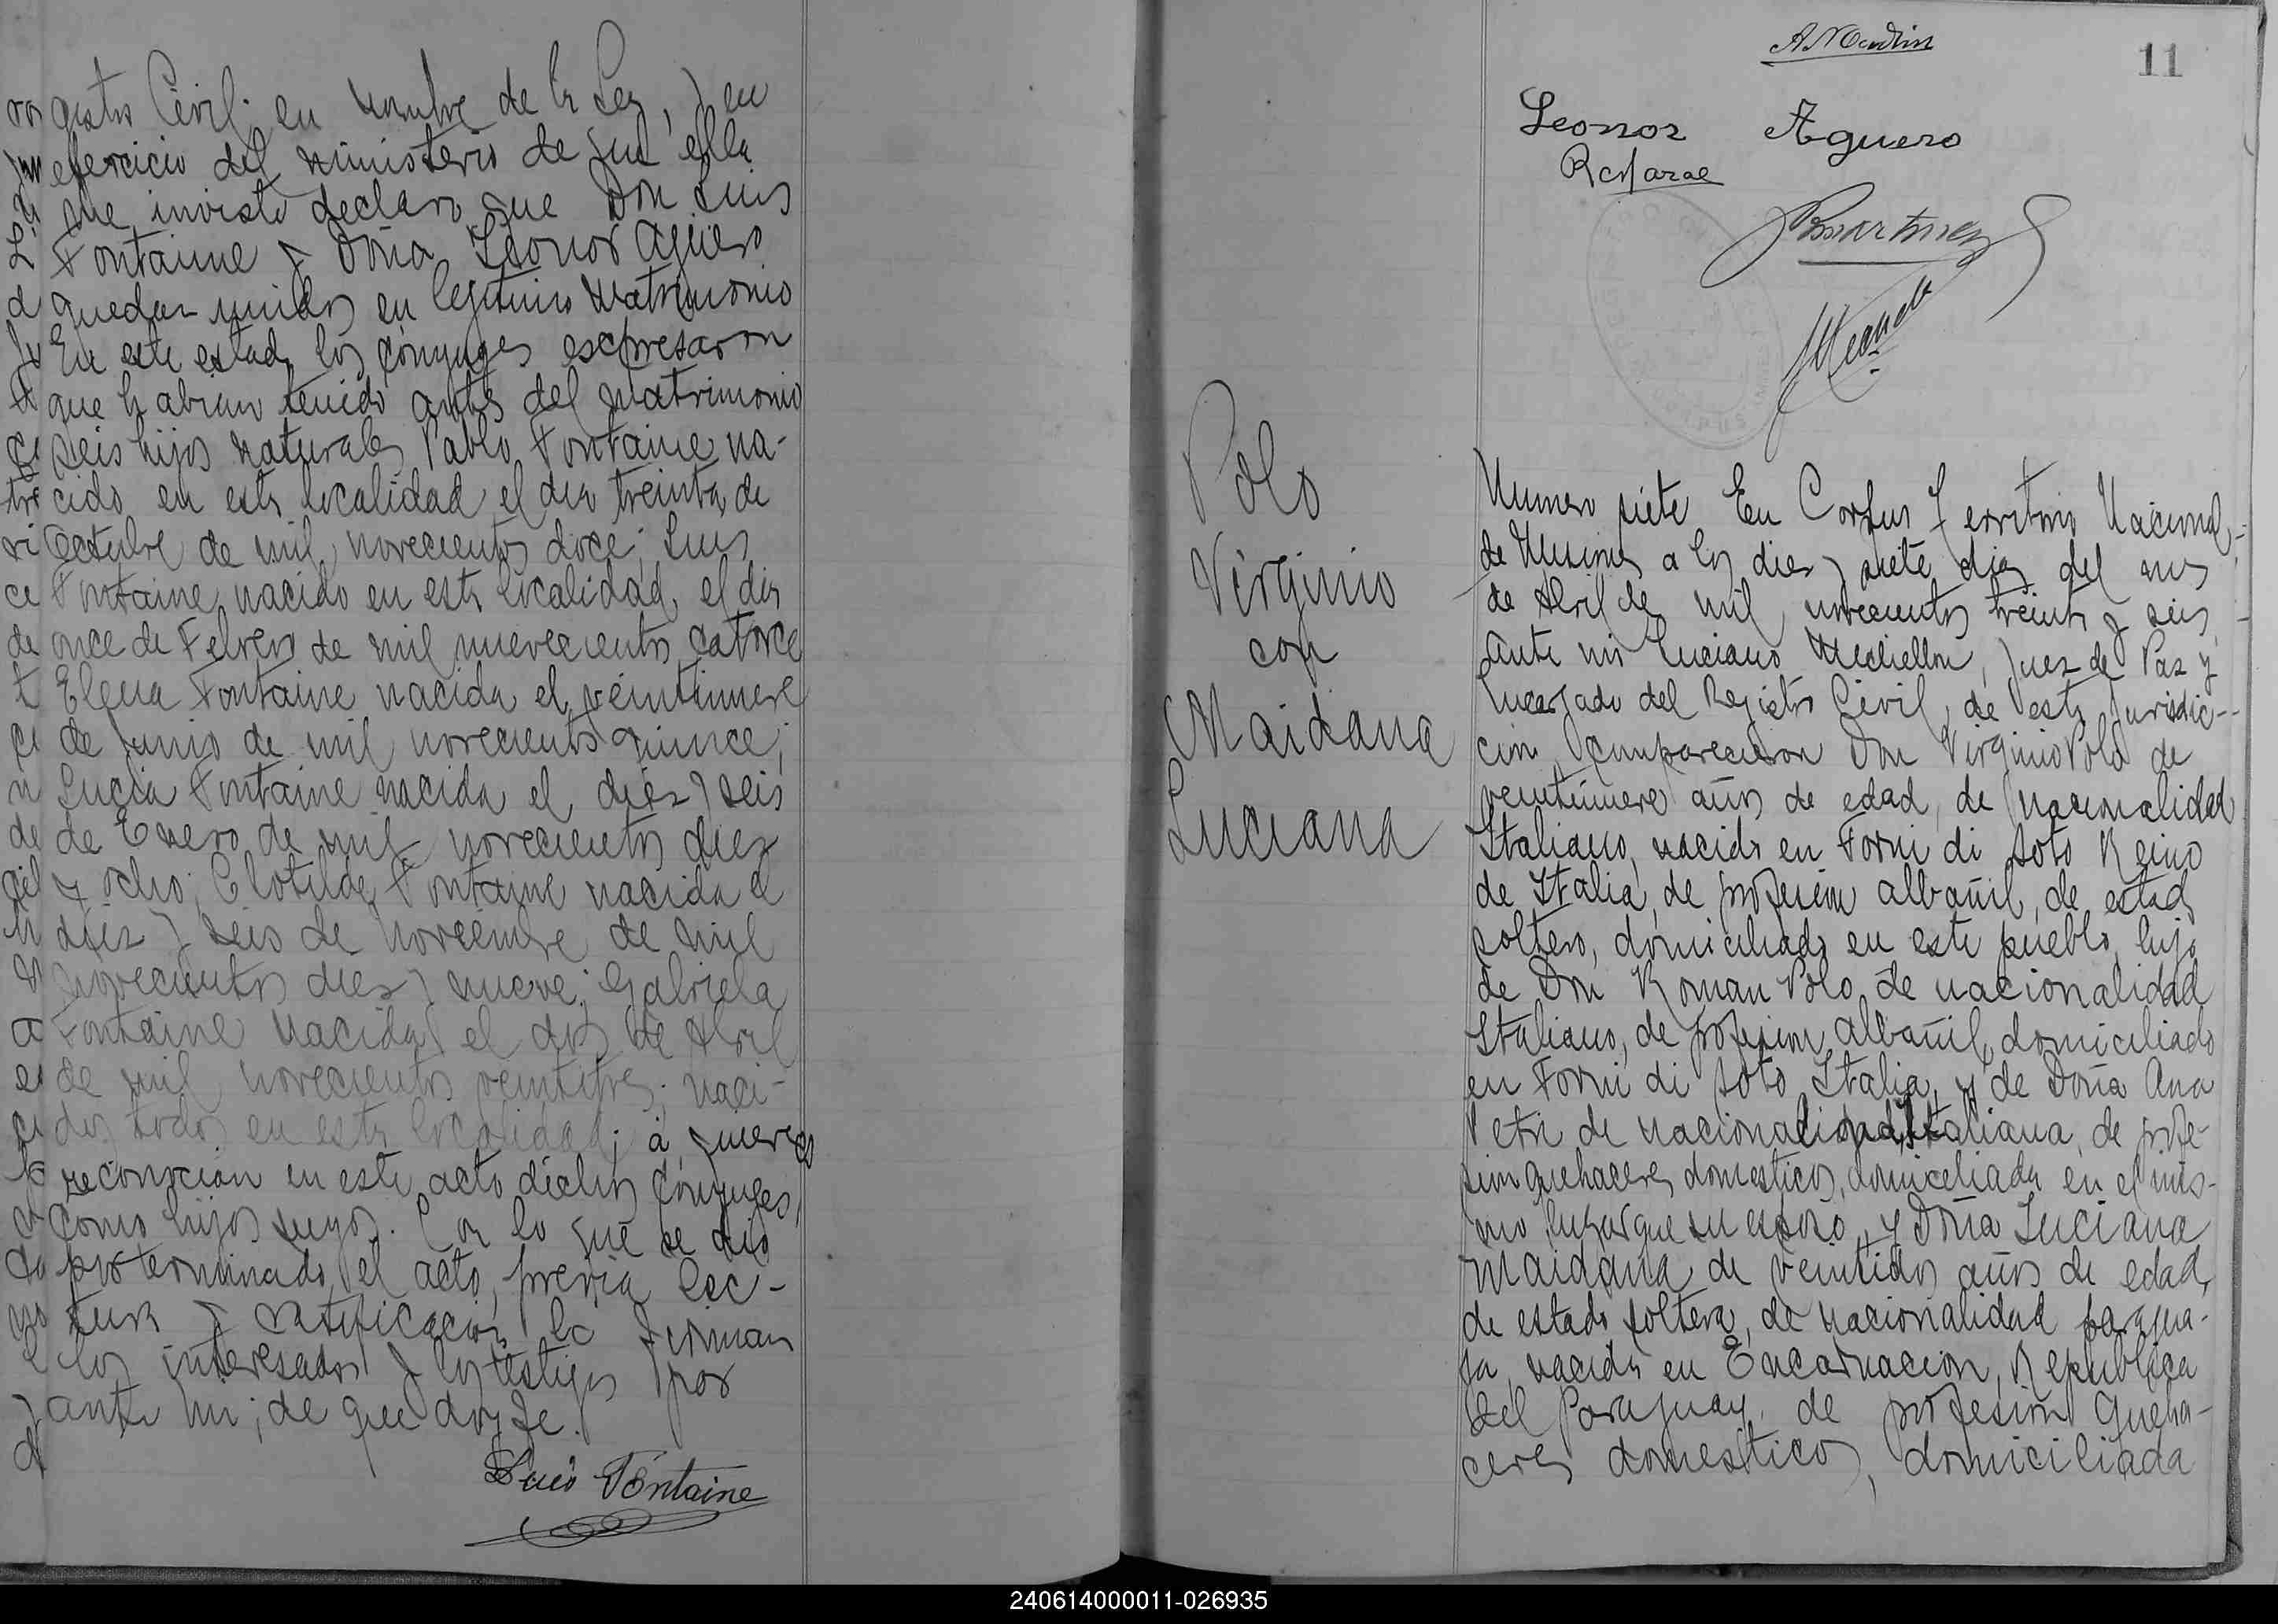 gistro Civil; en nombre de la Ley, y en
ejercicio del ministerio de que ella
me inviste declaro que Don Luis
Fontaine y Doña Leonor Agüero
quedan unidos en legitimo matrimonio
En este estado los conyuges escpresaron
que habian tenido antes del matrimonio
seis hijos naturales Pablo Fontaine na-
cido en esta localidad el dia treinta de
Octubre de mil novecientos doce; Luis
Fontaine nacido en esta localidad el dia
once de Febrero de mil nuevecientos catorce
Elena Fontaine nacida el veintinueve
de Junio de mil novecientos quince;
Lucia Fontaine nacida el diez y seis
de Enero de mil novecientos diez
y ocho; Clotilde Fontaine nacida el
diez y seis de Noviembre de mil
novecientos diez y nueve; Gabriela
Fontaine nacida el dos de Abril
de mil novecientos veintitres; naci-
dos todos en esta localidad; á quienes
reconocian en este acto dichos conyuges,
como hijos suyos. Con lo que se dió
por terminado el acto, previa lec-
tura y ratificacion la firman
los interesados y los testigos por
ante mi; de que doy fe.
Luis Fontaine
11
Leonor Aguero
Polo
Virginio
con
Maidana
Luciana
Numero siete En Corpus Territorio Nacional
de Misiones a los diez y siete dias del mes
de Abril de mil novecientos treinta y seis,
ante mi Luciano Mechellon, Juez de Paz y
Encargado del Registro Civil, de esta Jurisdic-
cion comparecieron Don Virginio Polo de
veintinueve años de edad, de nacionalidad
Italiano, nacido en Forni di Soto Reino
de Italia, de profesión albañil, de estado
soltero, domiciliado en este pueblo, hijo
de Don Roman Polo de nacionalidad
Italiano, de profesion albañil, domiciliado
en Forni di Soto Italia, y de Doña Ana
Petri de nacionalidad Italiana, de profe-
sion quehaceres domesticos, domiciliada en el mis-
mo lugar que su esposo, y Doña Luciana
Maidana de veintidos años de edad,
de estado soltera, de nacionalidad paragua-
ya, nacida en Encarnacion, Republica
del Paraguay, de profesion queha-
ceres domesticos, domiciliada
240614000011-026935